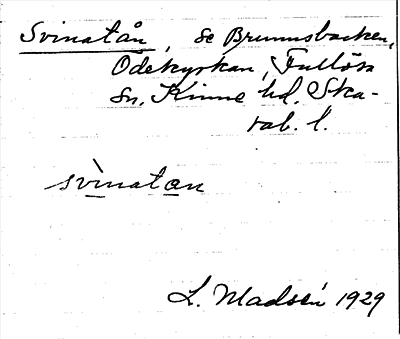 Svinatån, se Brunnsbacken,
Ödekyrkan, Fullösa
sn, Kinne hd, Ska-
rab. l.
svìnatan
L. Madsén 1929